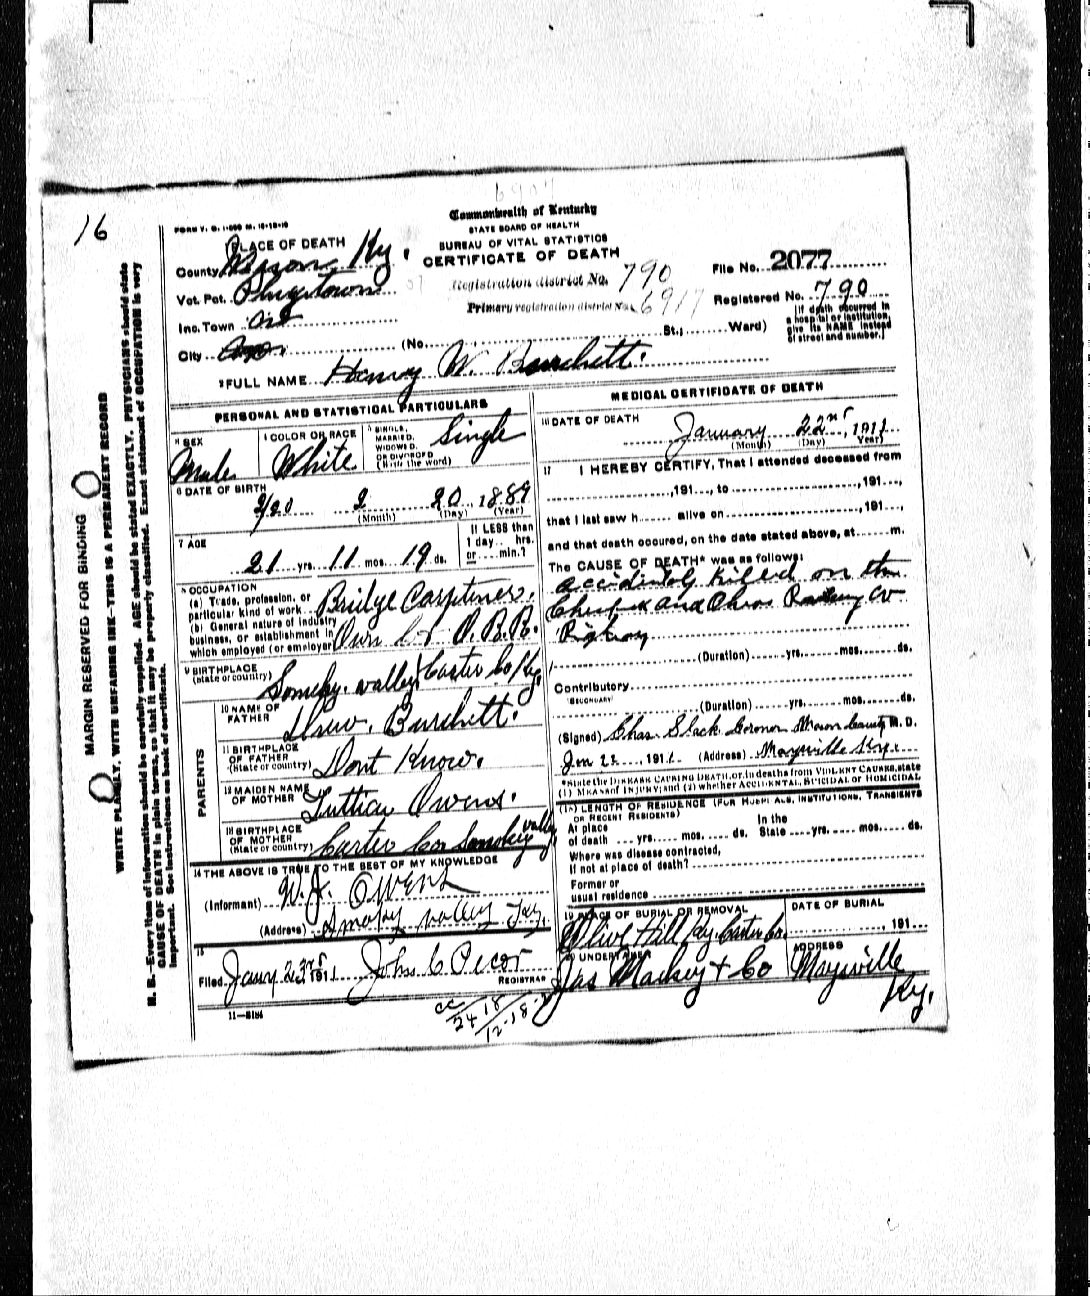 16
6907
FORM V. S. 1-500 M. 10-12-10
Commonwealth of Kentucky
STATE BOARD OF HEALTH
BUREAU OF VITAL STATISTICS
CERTIFICATE OF DEATH
PLACE OF DEATH
County Mason, Ky.
Vot. Pct. Plugtown
Inc. Town
City (No. St.; Ward)
Registration district No. 790
Primary registration district No. 6917
File No. 2077
Registered No. 790
[If death occurred in
a hospital or institution,
give its NAME instead
of street and number.]
2 FULL NAME Henry W. Burchett.
PERSONAL AND STATISTICAL PARTICULARS
3 SEX
Male
4 COLOR OR RACE
White
5 SINGLE,
MARRIED,
WIDOWED,
OR DIVORCED
(Write the word)
Single
6 DATE OF BIRTH
2/20 2 20 1889
(Month) (Day) (Year)
7 AGE
21 yrs. 11 mos. 19 ds.
If LESS than
1 day... hrs.
or... min.?
8 OCCUPATION
(a) Trade, profession, or
particular kind of work
(b) General nature of industry
business, or establishment in
which employed (or employer)
Bridge Carptiner.
9 BIRTHPLACE
(State or country)
Smoky. valley Carter Co Ky.
PARENTS
10 NAME OF
FATHER
Drew. Burchett.
11 BIRTHPLACE
OF FATHER
(State or country)
Dont Know.
12 MAIDEN NAME
OF MOTHER
Owens.
13 BIRTHPLACE
OF MOTHER
(State or country)
Carter Co Smokey valley
14 THE ABOVE IS TRUE TO THE BEST OF MY KNOWLEDGE
(Informant) W. J. OWENS
(Address) Smoky valley Ky.
15
Filed Jany 23rd 1911 John C Pecor
REGISTRAR
11—5184
MEDICAL CERTIFICATE OF DEATH
16 DATE OF DEATH
January 22nd, 1911
(Month) (Day) Year)
17 I HEREBY CERTIFY, That I attended deceased from
, 191..., to , 191...,
that I last saw h... alive on , 191...,
and that death occured, on the date stated above, at... m.
The CAUSE OF DEATH* was as follows:
Accidently Killed on the
(Duration) yrs. mos. ds.
Contributory
(SECONDARY)
(Duration) yrs. mos. ds.
(Signed) Chas Slack Coroner Mason County M. D.
Jan 22, 1911 (Address) Maysville Ky.
*State the DISEASE CAUSING DEATH, or, in deaths from VIOLENT CAUSES, state
(1) MEANS of INJURY; and (2) whether ACCIDENTAL, SUICIDAL or HOMICIDAL
18 LENGTH OF RESIDENCE (FOR HOSPITALS, INSTITUTIONS, TRANSIENTS
OR RECENT RESIDENTS)
At place
of death yrs. mos. ds.
In the
State yrs. mos. ds.
Where was disease contracted,
if not at place of death?
Former or
usual residence
19 PLACE OF BURIAL OR REMOVAL
Olive Hill Ky. Carter Co.
DATE OF BURIAL
, 191...
20 UNDERTAKER
Jas Mackey + Co
ADDRESS
Maysville
Ky.
MARGIN RESERVED FOR BINDING
WRITE PLAINLY, WITH UNFADING INK—THIS IS A PERMANENT RECORD
N. B.—Every item of information should be carefully supplied. AGE should be stated EXACTLY. PHYSICIANS should state
CAUSE OF DEATH in plain terms, so that it may be properly classified. Exact statement of OCCUPATION is very
important. See instructions on back of certificate.